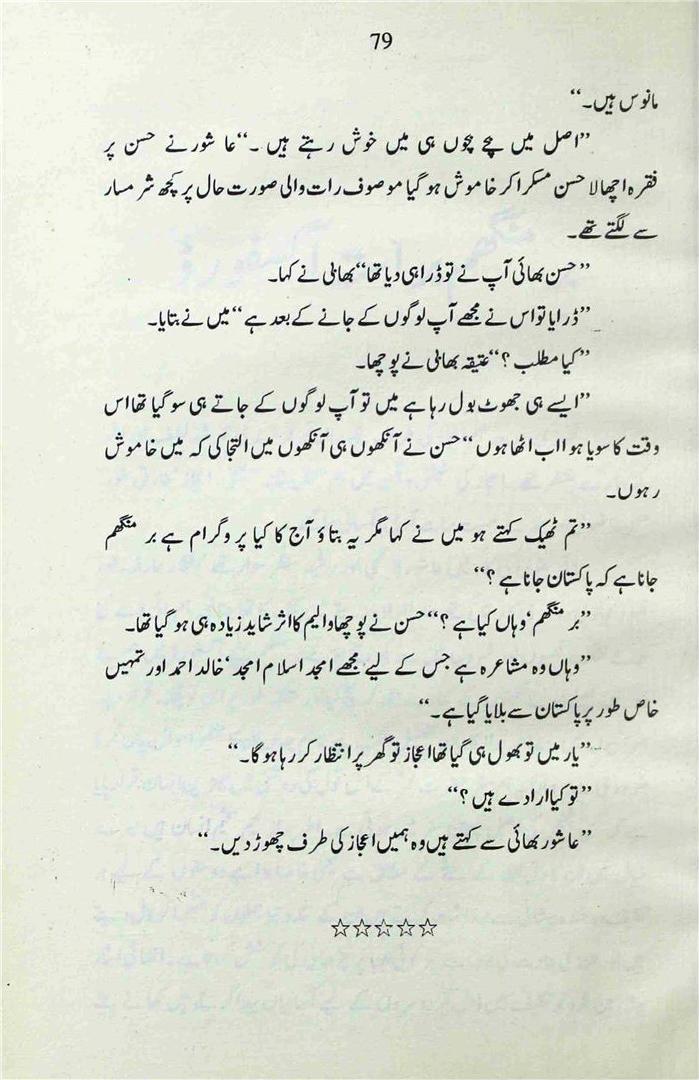 79
مانوس ہیں۔‘‘
’’اصل میں بچے بچوں ہی میں خوش رہتے ہیں ۔‘‘عاشور نے حسن پر
فقرہ اچھالا حسن مسکرا کر خاموش ہو گیا موصوف رات والی صورت حال پر کچھ شرمسار
سے لگتے تھے۔
’’حسن بھائی آپ نے تو ڈرا ہی دیا تھا‘‘ بھابی نے کہا۔
’’ڈرایا تو اس نے مجھے آپ لوگوں کے جانے کے بعد ہے‘‘ میں نے بتایا۔
’’کیا مطلب ؟‘‘ عتیقہ بھابی نے پوچھا۔
’’ایسے ہی جھوٹ بول رہا ہے میں تو آپ لوگوں کے جاتے ہی سو گیا تھا اس
وقت کا سویا ہوا اب اٹھا ہوں‘‘ حسن نے آنکھوں ہی آنکھوں میں التجا کی کہ میں خاموش
رہوں۔
’’تم ٹھیک کہتے ہو میں نے کہا مگر یہ بتاؤ آج کا کیا پروگرام ہے برمنگھم
جانا ہے کہ پاکستان جانا ہے ؟‘‘
’’برمنگھم‘ وہاں کیا ہے ؟‘‘ حسن نے پوچھا والیم کا اثر شاید زیادہ ہی ہو گیا تھا۔
’’وہاں وہ مشاعرہ ہے جس کے لیے مجھے امجد اسلام امجد‘ خالد احمد اور تمہیں
خاص طور پر پاکستان سے بلایا گیا ہے۔‘‘
’’یار میں تو بھول ہی گیا تھا اعجاز تو گھر پر انتظار کر رہا ہو گا۔‘‘
’’تو کیا ارادے ہیں ؟‘‘
’’عاشور بھائی سے کہتے ہیں وہ ہمیں اعجاز کی طرف چھوڑ دیں۔‘‘
☆☆☆☆☆